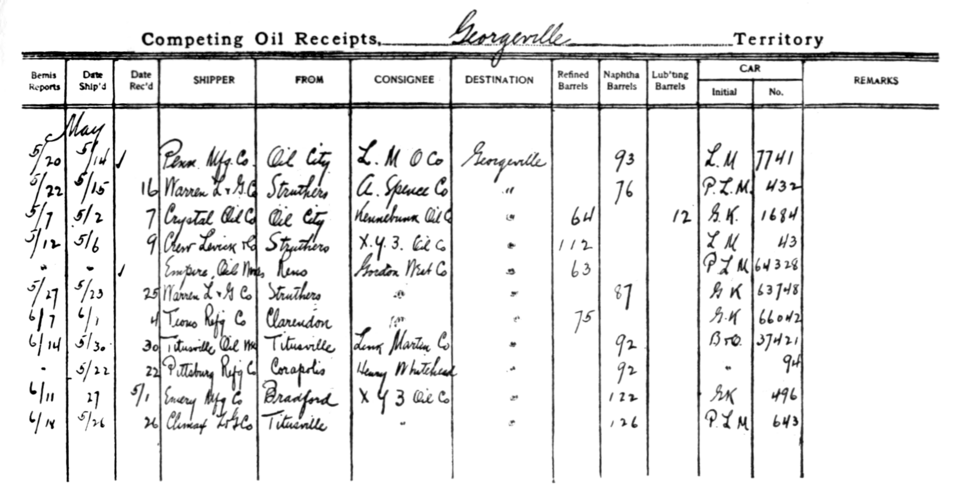 Competing Oil Receipts, Georgeville Territory
Bemis Reports Date Ship'd Date Rec'd SHIPPER FROM CONSIGNEE DESTINATION Refined Barrels Naphtha Barrels Lub'ting Barrels CAR Initial No. REMARKS
May
5/20 5/14 √ Penn. Mfg. Co. Oil City L. M O Co Georgeville 93 L. M 7741
5/22 5/15 16 Warren L & G. Co Struthers A. Spence Co " 76 P. L. M. 432
5/7 5/2 7 Crystal Oil Co Oil City Kennebunk Oil C " 64 12 G. K. 1684
5/12 5/6 9 Crew Levick & Co Struthers X. Y. 3. Oil Co " 112 L M 43
" " √ Empire Oil Reno Gordon West Co " 63 P L M 64328
5/27 5/23 25 Warren L & G Co Struthers " " 87 G K 63748
6/7 6/1 4 Refg Co Clarendon " " 75 G.K 66042
6/14 5/30 30 Titusville Oil Titusville Link Martin Co " 92 B&O 37421
" 5/22 22 Pittsburg Refg C Corapolis Henry Whitehead " 92 " 94
6/11 27 5/1 Emery Mfg Co Bradford X Y 3 Oil Co " 122 GK 496
6/18 5/26 26 Climax Co Titusville " " 126 P. L M 643